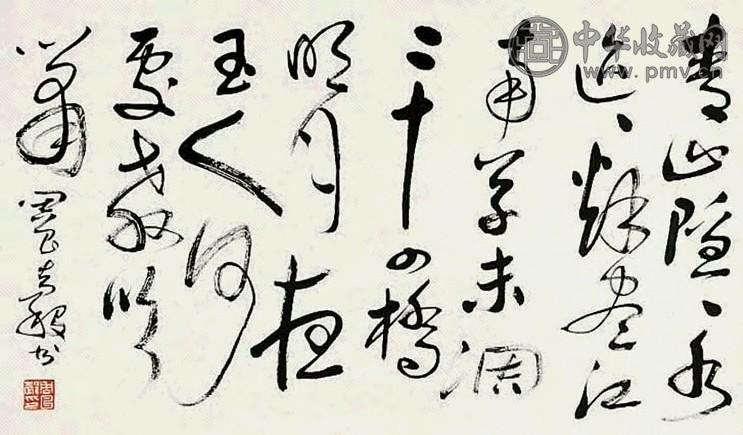 中华收藏网
www.pmv.cn
青山隐、水
迢、秋尽江
南草未凋
二十四桥
明月夜
玉人何
处教吹
箫 周书